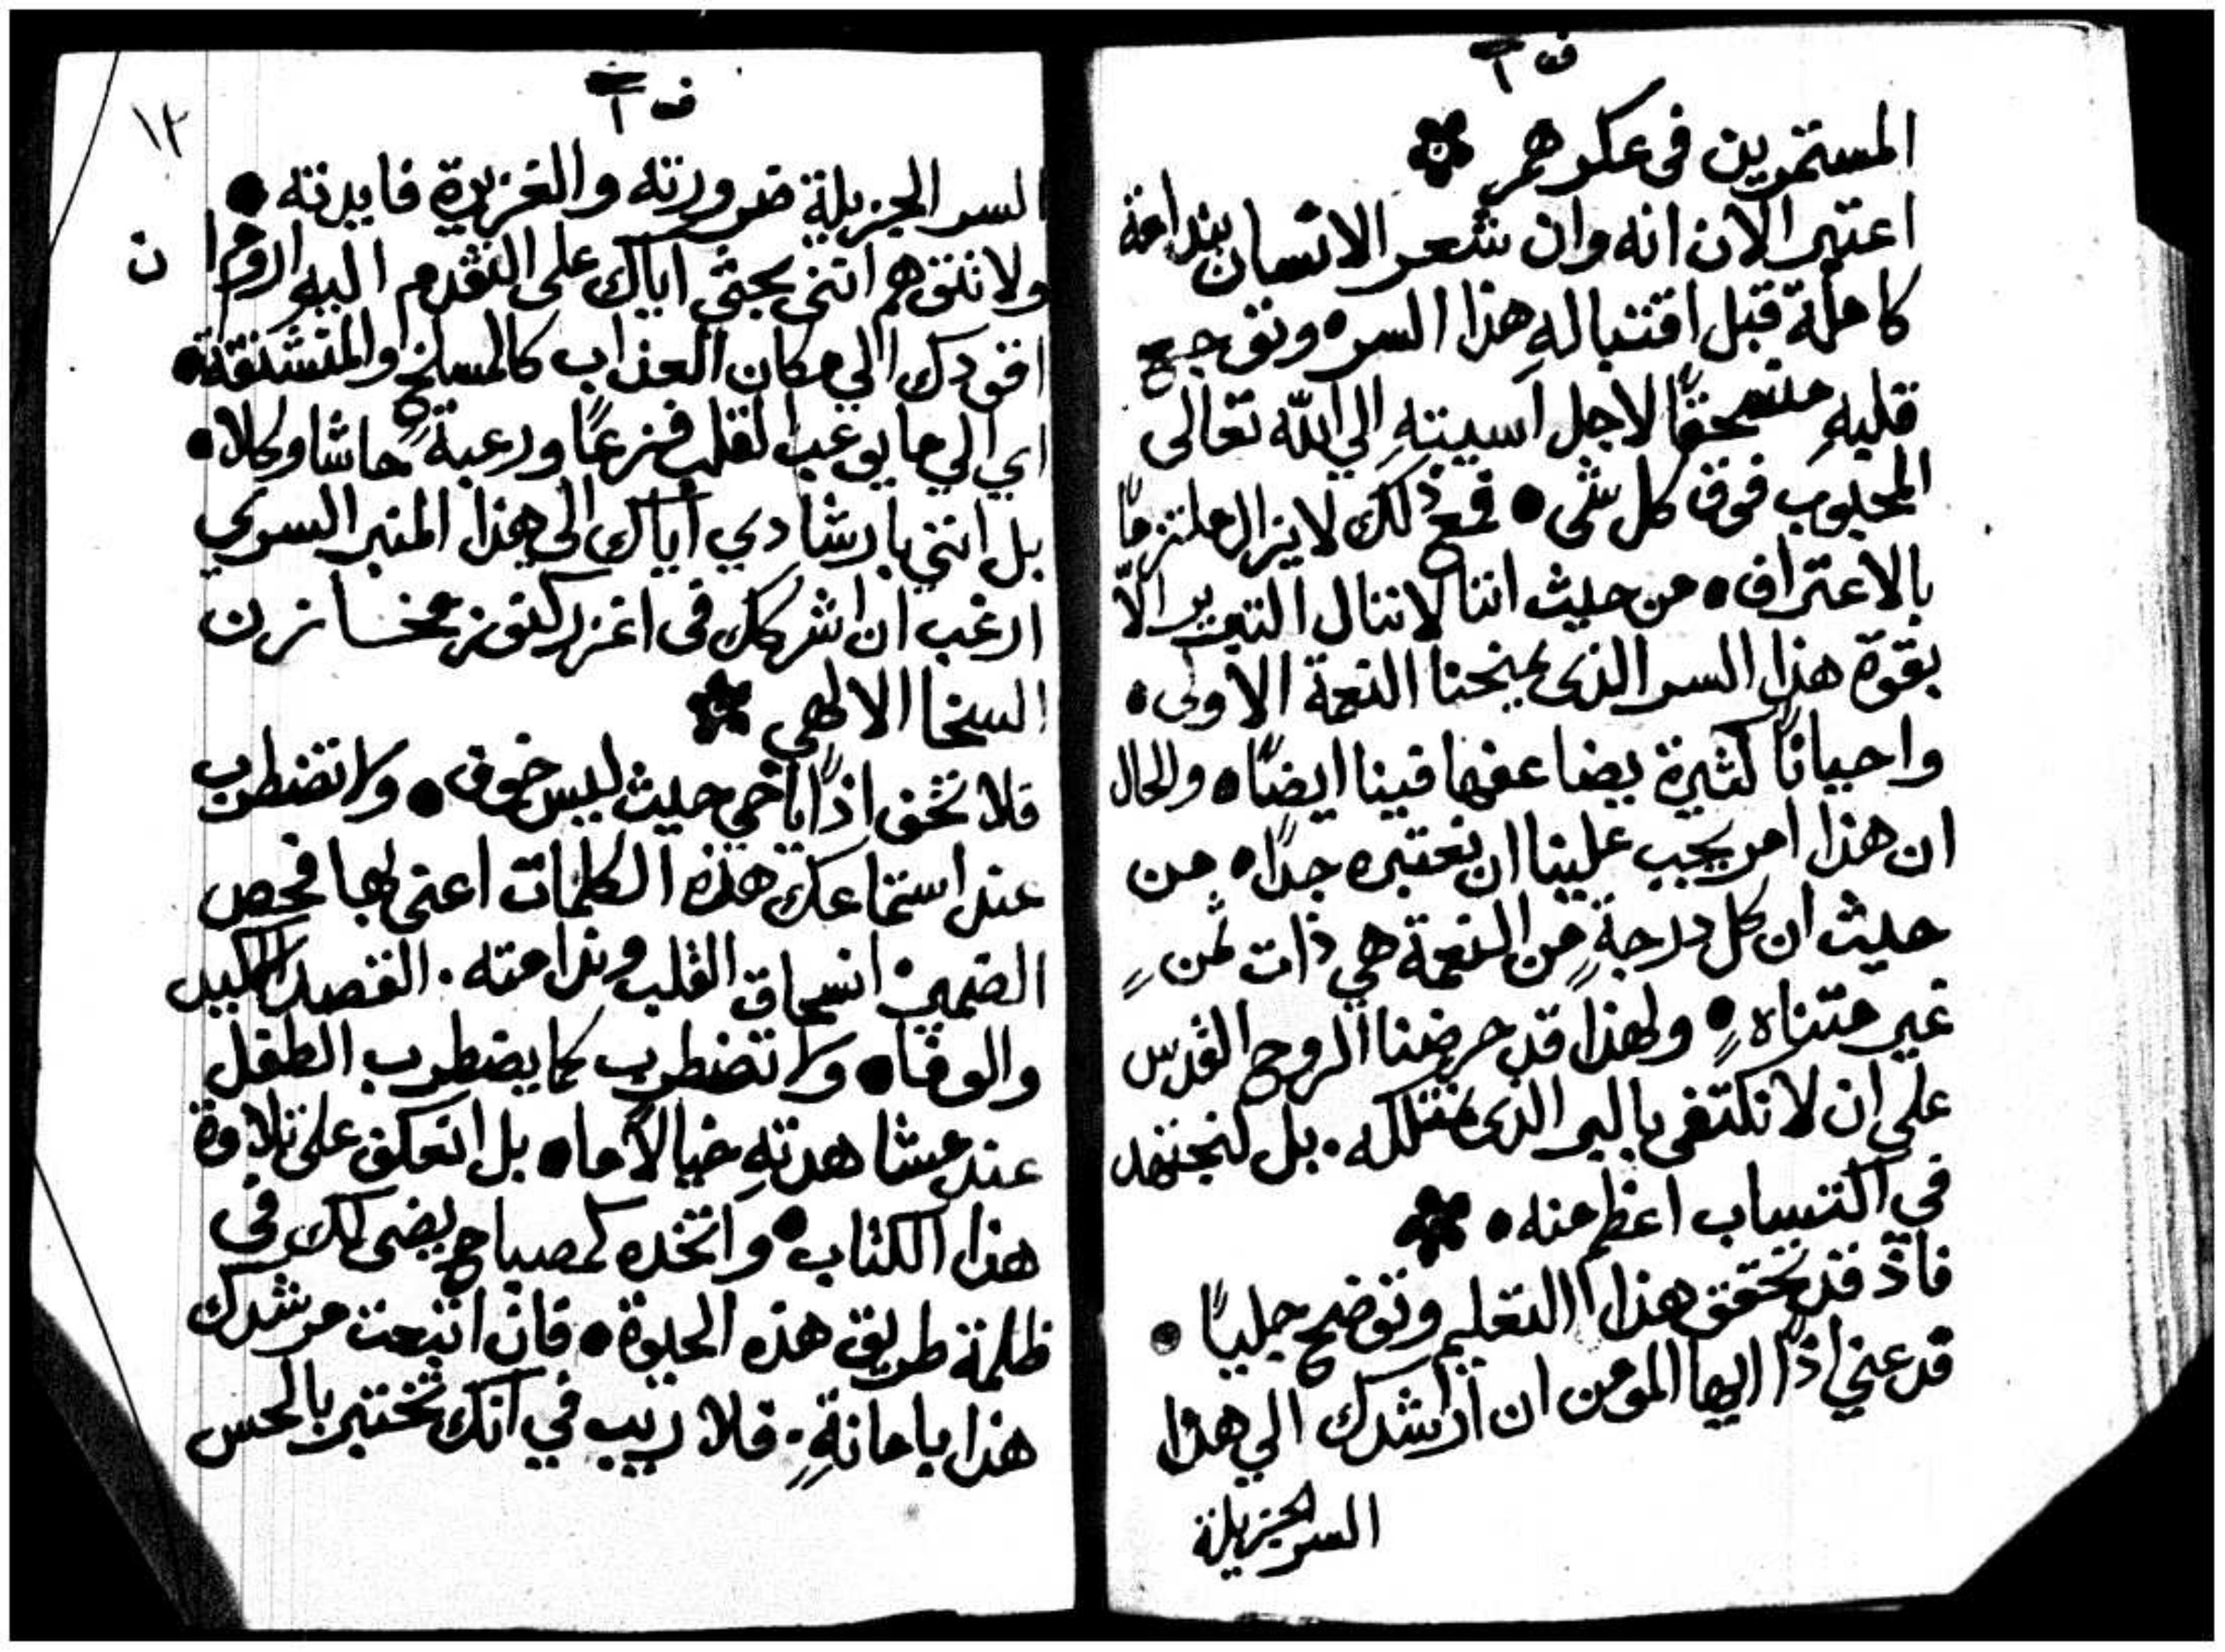 ف ا
المستمرين فى عكرهم
اعتبر الان انه وان شعر الانسان بندامة
كاملة قبل اقتباله هذا السر • وتوجع
قلبهِ منسحقًا لاجل اسيتهِ الي اللّه تعالى
المحبوب فوق كل شى • فمع ذلك لايزال ملتزمًا
بالاعتراف • من حيث اننا لاننال التبرير الّا
بقوة هذا السر الذى يمنحنا النعمة الاولى •
واحيانًا كثيرة يضاعفها فينا ايضًا • والحال
ان هذا امر يجب علينا ان نعتبره جدًا • من
حيث ان كل درجةٍ من النعمة هي ذات ثمنٍ
غير متناهٍ • ولهذا قد حرضنا الروح القدس
علي ان لا نكتفى بالبر الذى نمتلكه • بل لنجتهد
في اكتساب اعظم منه •
فاذ قد تحقق هذا التعليم وتوضح جليًا •
فدعني اذًا ايها المومن ان ارشدك الي هذا
السر الجزيلة
ف ا
١٢
السر الجزيلة ضرورته والغزيرة فايدته •
ولا تتوهم انني بحثى اياك على التقدم اليه اروم ان
اقودك الي مكان العذاب كالمسلخ او المشنقة •
اي الي ما يوعب القلب فزعًا ورعبةً حاشا وكلا •
بل انني بارشادي اياك الى هذا المنبر السري
ارغب ان اشركك فى اغزر كنوز مخازن
السخا الالهي
فلا تخف اذًا ياخي حيث ليس خوف • ولا تضطرب
عند استماعك هذه الكلمات اعنى بها فحص
الضمير • انسحاق القلب وندامته • القصد الاكيد
والوفا • ولا تضطرب كما يضطرب الطفل
عند مشاهدتهِ خيالًا ما • بل اعكف على تلاوة
هذا الكتاب • واتخده كمصباح يضى لك فى
ظلمة طريق هذه الحيوة • فان اتبعت مرشدك
هذا بامانةٍ • فلا ريب في انك تختبر بالحس